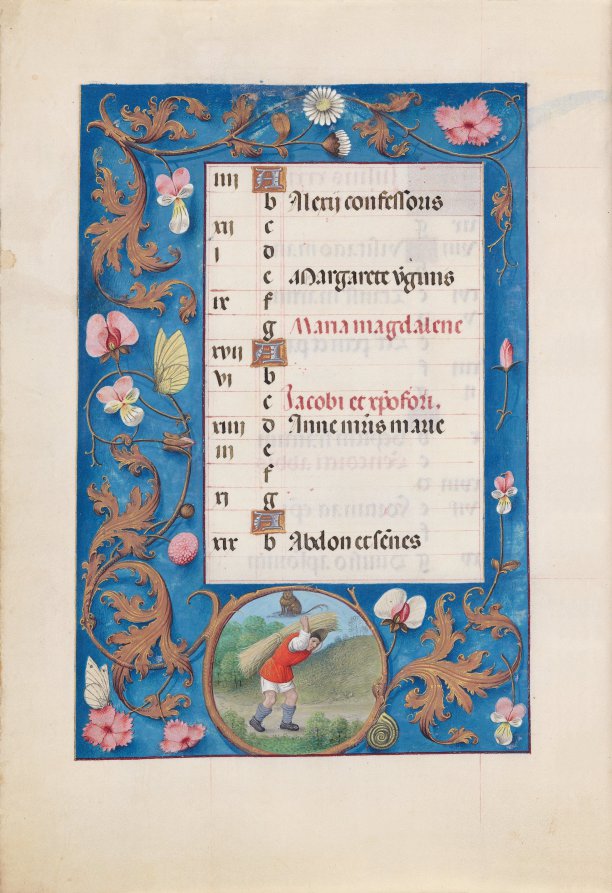 iiij A
b Alexij confessoris
xij c
i d
e Margarete v̄ginis
ix f
g Maria magdalene
xvij A
vi b
c Jacobi et xp̄ofori.
xiiij d Anne mr̄is marie
iij e
f
xi g
A
xix b Abdon et sēnes